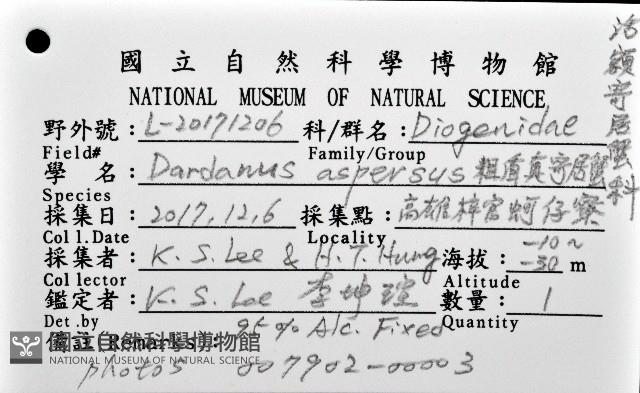 國立自然科學博物館
NATIONAL MUSEUM OF NATURAL SCIENCE
野外號：L-20171206 科/群名：Diogenidae
Field# Family/Group
學名：Dardanus aspersus 粗盾真寄居蟹
Species
採集日：2017.12.6 採集點：高雄梓官蚵仔寮
Col l.Date Locality
採集者：K. S. Lee & H. T. Hung 海拔：-10~-30 m
Col lector Altitude
鑑定者：K. S. Lee 李坤瑄 數量：1
Det .by Quantity
95% Alc. Fixed
(Remarks):
國立自然科學博物館
NATIONAL MUSEUM OF NATURAL SCIENCE
photos 007902-00003
活額寄居蟹科